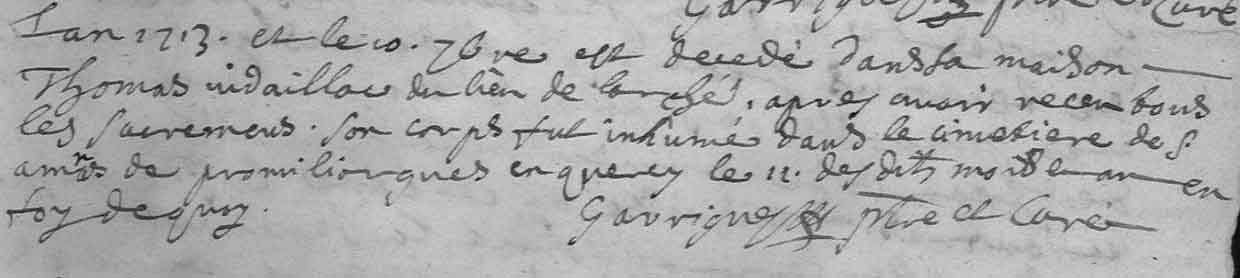 Garrigues ptre et Curé
Lan 1713. et le 10. 7bre est decedé dans sa maison
Thomas vidaillac du lieu de larché, apres avoir receu tous
les sacremens. son corps fut inhumé dans le cimetiere de St
amans de promiliorgues en quercy le 11. desdits mois et an en
foy de quoy. Garrigues ptre et Curé